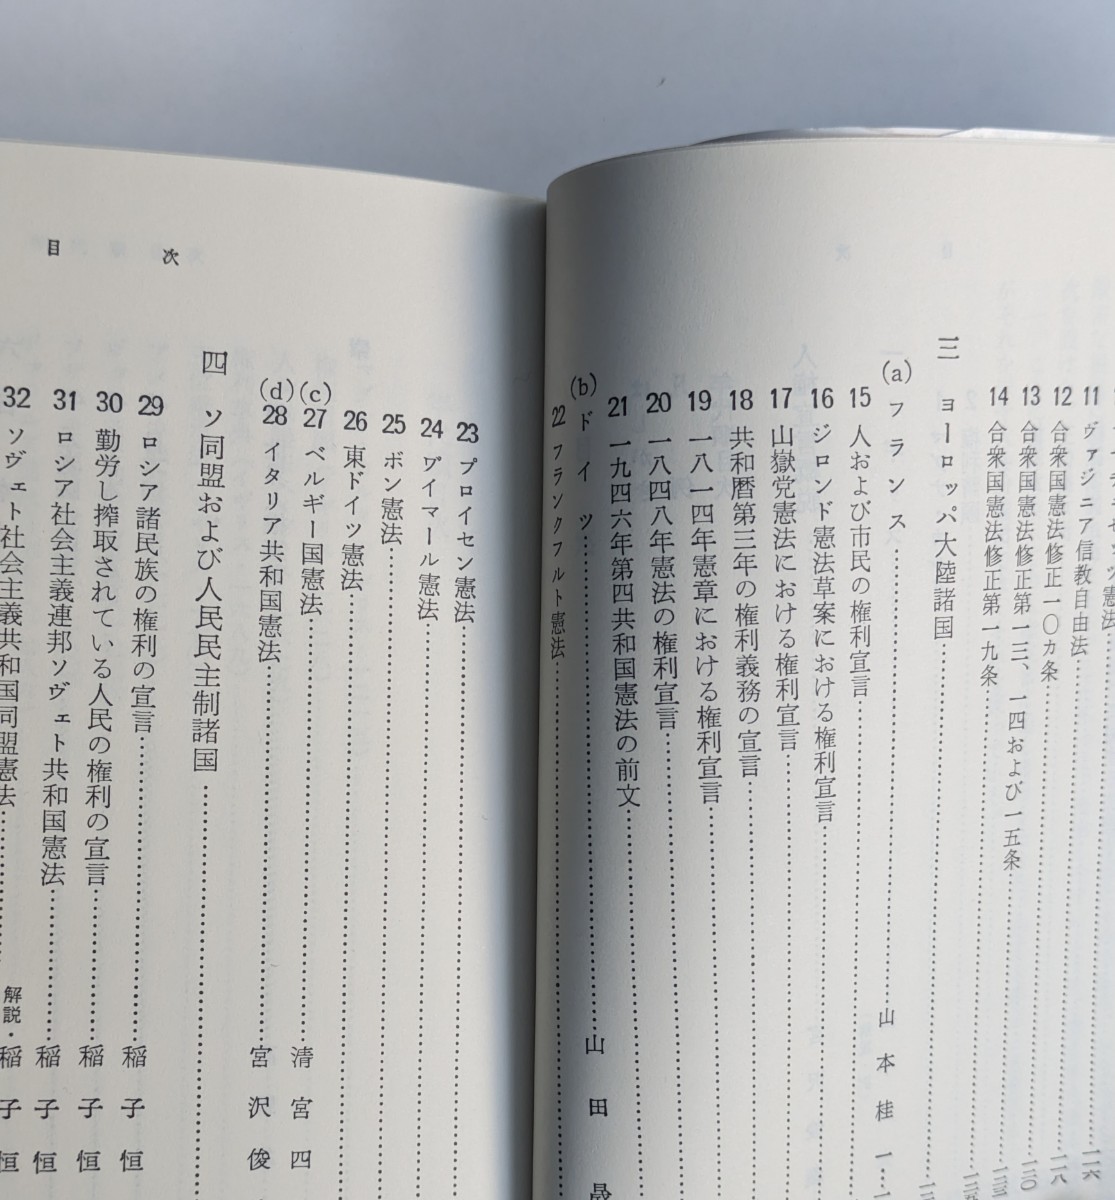 11 ヴァジニア信教自由法 一一六
12 合衆国憲法修正一〇カ条 一一八
13 合衆国憲法修正第一三、一四および一五条 一二〇
14 合衆国憲法修正第一九条
三 ヨーロッパ大陸諸国
(a) フランス 山本桂一
15 人および市民の権利宣言
16 ジロンド憲法草案における権利宣言
17 山嶽党憲法における権利宣言
18 共和暦第三年の権利義務の宣言
19 一八一四年憲章における権利宣言
20 一八四八年憲法の権利宣言
21 一九四六年第四共和国憲法の前文
(b) ドイツ 山田晟
22 フランクフルト憲法
目次
23 プロイセン憲法
24 ワイマール憲法
25 ボン憲法
26 東ドイツ憲法
(c) 27 ベルギー国憲法 清宮四
(d) 28 イタリア共和国憲法 宮沢俊
四 ソ同盟および人民民主制諸国
29 ロシア諸民族の権利の宣言 稲子恒
30 勤労し搾取されている人民の権利の宣言 稲子恒
31 ロシア社会主義連邦ソヴェト共和国憲法 稲子恒
32 ソヴェト社会主義共和国同盟憲法 解説・稲子恒